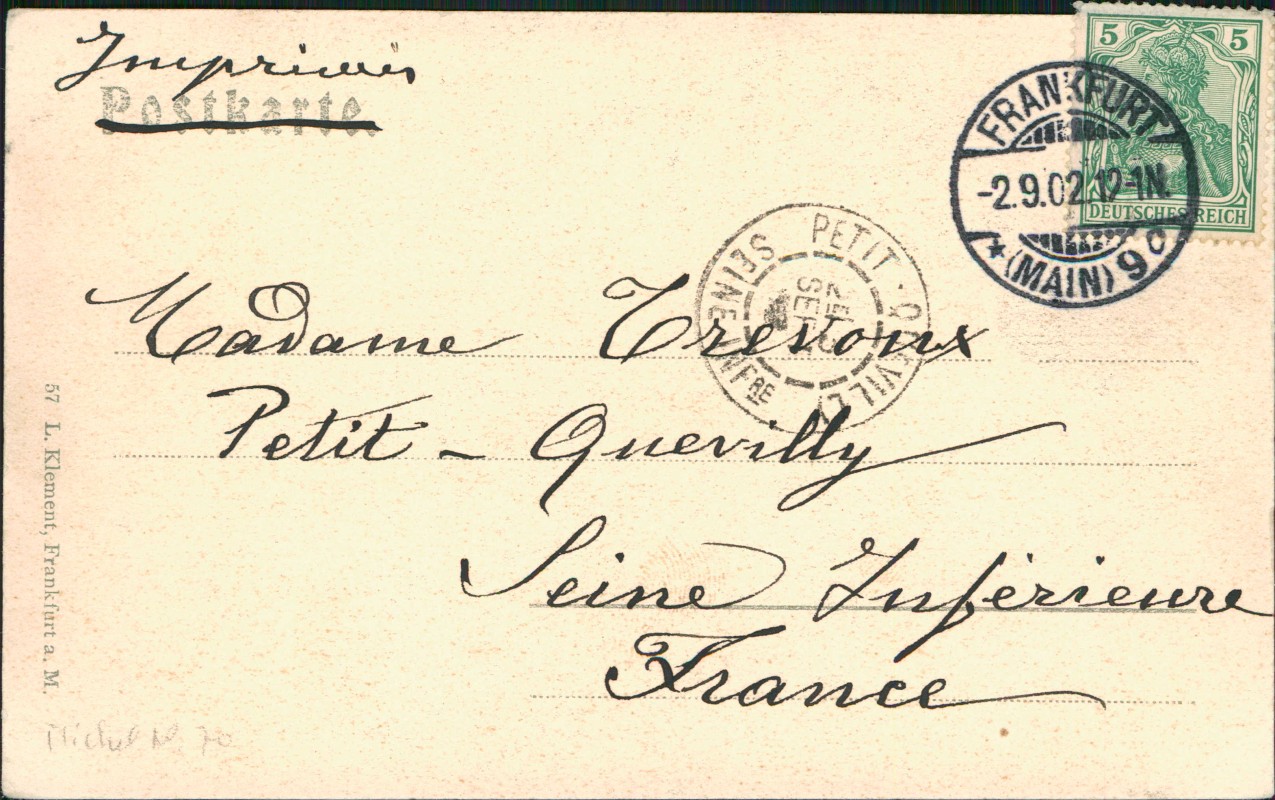 Imprimés
Postkarte.
5 5
DEUTSCHES REICH
FRANKFURT
-2.9.02.12-1N.
* (MAIN) 9c
PETIT-QUEVILLY
SEINE INFRE
Madame Trevoux
Petit - Quevilly
Seine Inférieure
France
57 L. Klement, Frankfurt a. M.
Michel Nr. 70